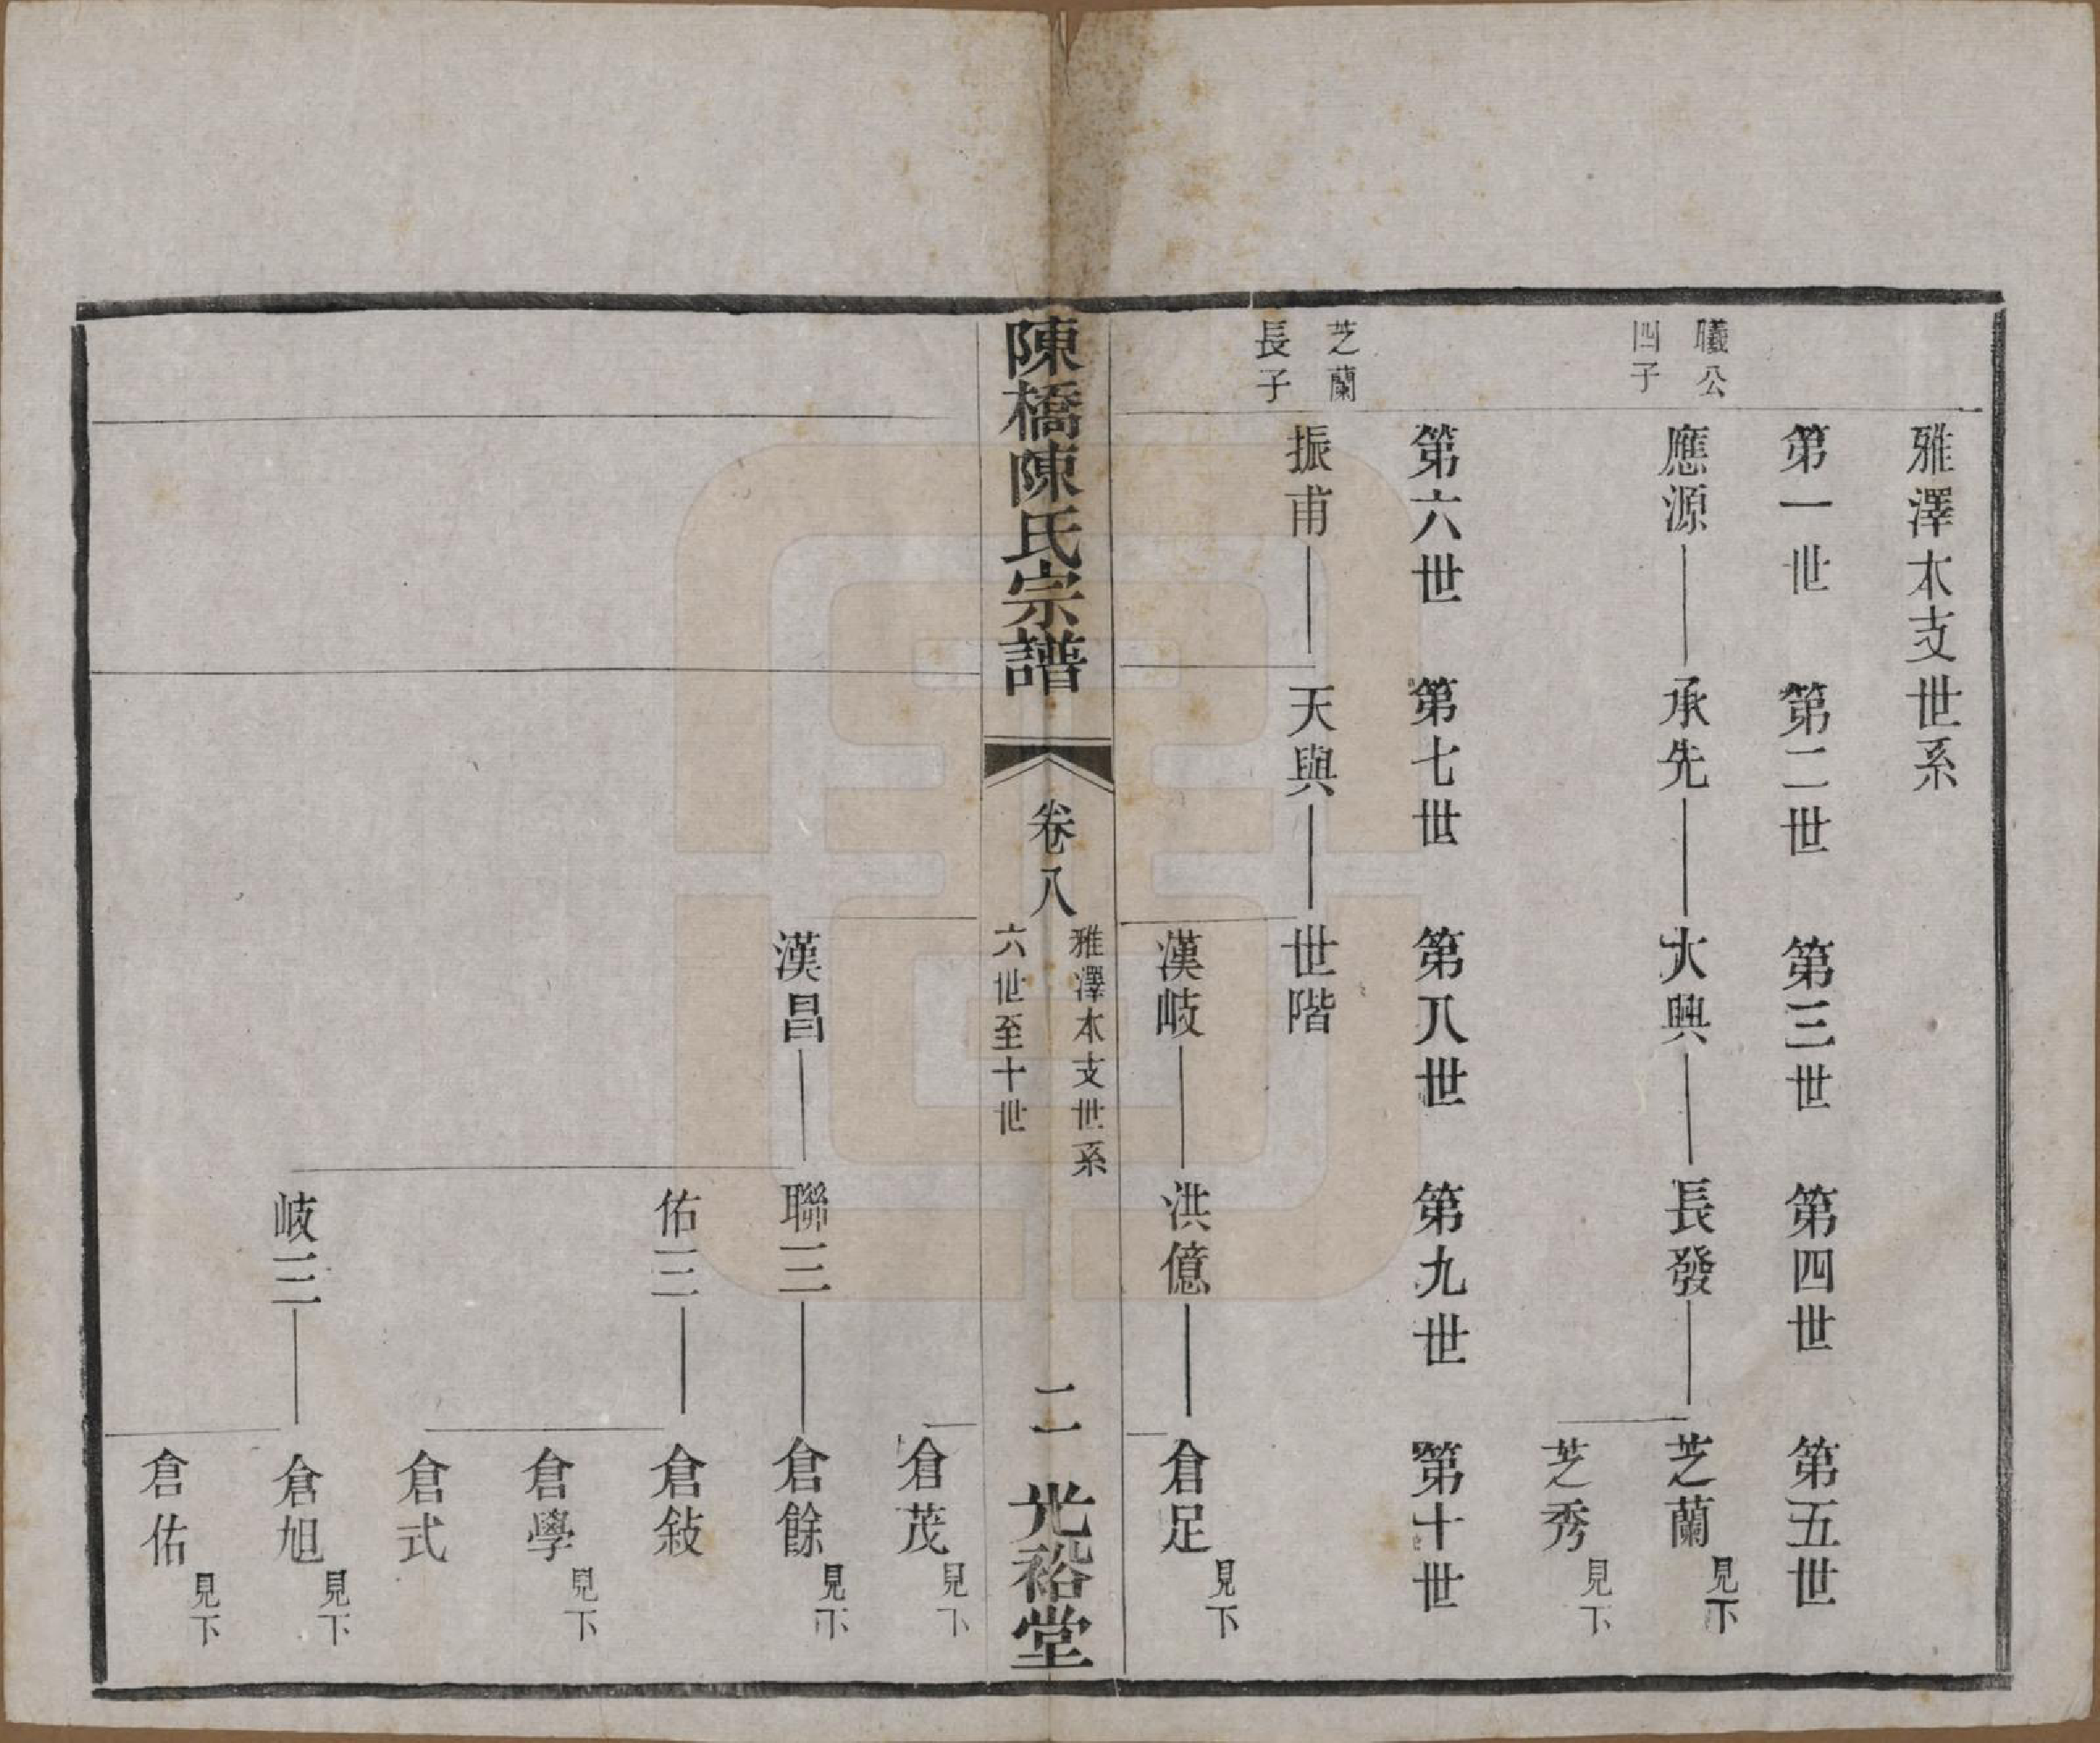 雅澤本支世系
第一世　第二世　第三世　第四世　第五世
曦公
四子
應源　承先　大興　長發　芝蘭見下
芝秀見下
第六世　第七世　第八世　第九世　第十世
芝蘭
長子
振甫　天與　世階
漢岐　洪億　倉足見下
陳橋陳氏宗譜　卷八　雅澤本支世系　六世至十世　二　光裕堂
倉茂見下
漢昌　聯三　倉餘見下
佑三　倉敍
倉學見下
倉式
岐三　倉旭見下
倉佑見下